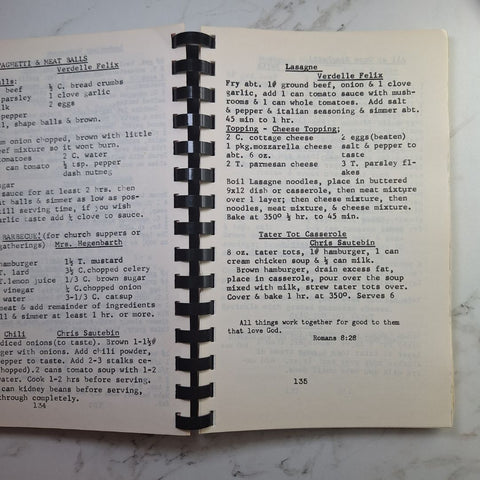 PAGHETTI & MEAT BALLS
Verdelle Felix
alls:
beef ½ C. bread crumbs
parsley 1 clove garlic
lk 2 eggs
pepper
ll, shape balls & brown.
um onion chopped, brown with little
eef mixture so it wont burn.
omatoes 2 C. water
can tomato ½ tsp. pepper
dash nutmeg
ugar
sauce for at least 2 hrs. then
at balls & simmer as low as pos-
till serving time, if you wish
arlic taste add ½ clove to sauce.
BARBECUE! (for church suppers or
gatherings) Mrs. Hegenbarth
hamburger 1½ T. mustard
T. lard 3½ C.chopped celery
T.lemon juice 1/3 C. brown sugar
vinegar ½ C.chopped onion
water 3-1/3 C. catsup
meat & add remainder of ingredients
ll & simmer at least 1 hr. or more.
Chili Chris Sautebin
diced onions(to taste). Brown 1-1½#
ger with onions. Add chili powder,
pepper to taste. Add 2-3 stalks ce-
chopped).2 cans tomato soup with 1-2
water. Cook 1-2 hrs before serving.
can kidney beans before serving,
through completely.
134
Lasagne
Verdelle Felix
Fry abt. 1# ground beef, onion & 1 clove
garlic, add 1 can tomato sauce with mush-
rooms & 1 can whole tomatoes. Add salt
& pepper & italian seasoning & simmer abt.
45 min to 1 hr.
Topping - Cheese Topping:
2 C. cottage cheese 2 eggs(beaten)
1 pkg.mozzarella cheese salt & pepper to
abt. 6 oz. taste
2 T. parmesan cheese 3 T. parsley fl-
akes
Boil Lasagne noodles, place in buttered
9x12 dish or casserole, then meat mixture
over 1 layer; then cheese mixture, then
noodles, meat mixture, & cheese mixture.
Bake at 350º ½ hr. to 45 min.
Tater Tot Casserole
Chris Sautebin
8 oz. tater tots, 1# hamburger, 1 can
cream chicken soup & ½ can milk.
Brown hamburger, drain excess fat,
place in casserole, pour over the soup
mixed with milk, strew tater tots over.
Cover & bake 1 hr. at 350º. Serves 6
All things work together for good to them
that love God.
Romans 8:28
135